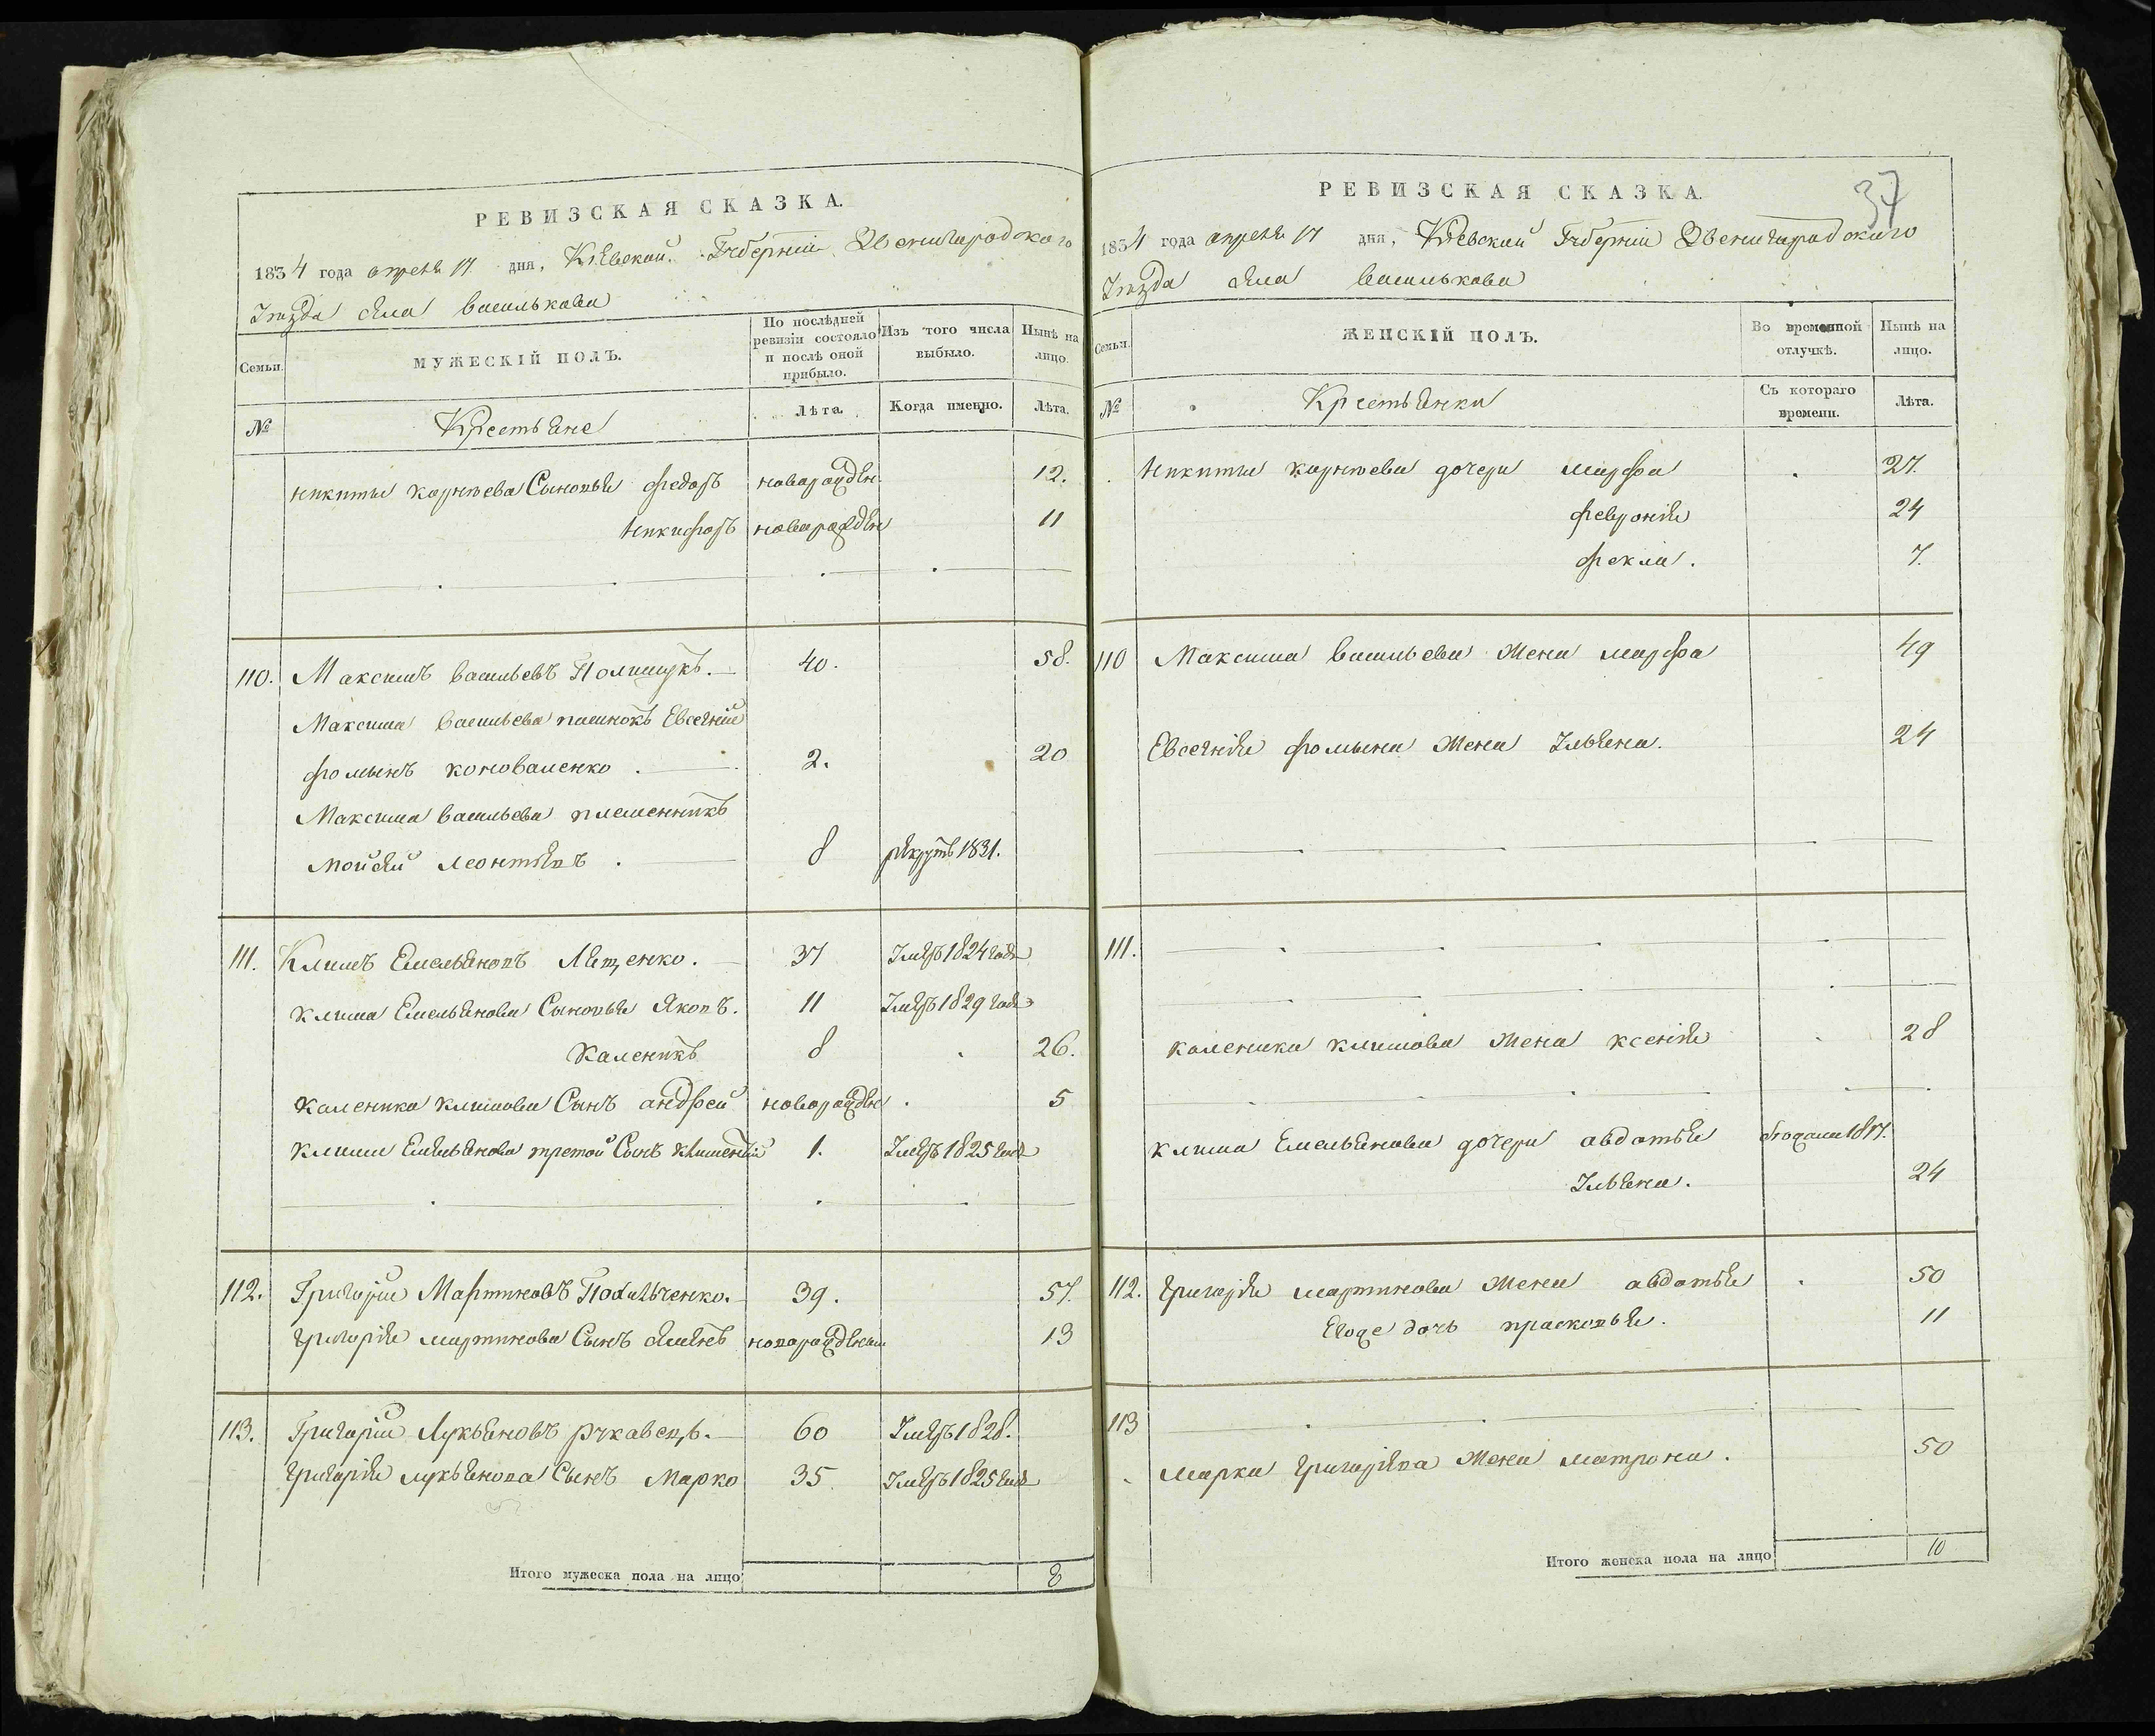 РЕВИЗСКАЯ СКАЗКА.
1834 года апреля 17 дня, Кіевской Губерніи Звенигородского
Уезда села Василькова
Семьи.
МУЖЕСКІЙ ПОЛЪ.
По послѣдней ревизіи состояло и послѣ оной прибыло.
Изъ того числа выбыло.
Нынѣ на лицо.
№
Крестьяне
Лѣта.
Когда именно.
Лѣта.
Никиты корнѣева Сыновья федоръ новорожден. 12.
Никифоръ новорожден 11
110. Максимъ васильевъ Полищукъ. 40. 58.
Максима васильева пасинокъ Евсегній
фоминъ коноваленко. 2. 20
Максима васильева племенникъ
Мойсей леонтіевъ. 8 рекрутъ 1831.
111. Климъ Емельяновъ Лященко. 37 Умеръ 1824 года
Клима Емельянова Сыновья Яковъ. 11 Умеръ 1829 года
Каленикъ 8 26.
Каленика климова Сынъ андрей новорожден 5
Клима Емельянова третой Сынъ 1. Умеръ 1825 года
112. Григорій Мартиновъ 39. 57.
Григорія мартинова Сынъ новорожденъ 13
113. Григорій Лукьяновъ рукавецъ. 60 Умеръ 1828.
Григорія лукьянова Сынъ Марко 35. Умеръ 1825 года
Итого мужеска пола на лицо 8
37
РЕВИЗСКАЯ СКАЗКА.
1834 года апреля 17 дня, Кіевской Губерніи Звенигородского
Уезда села Василькова
Семьи.
ЖЕНСКІЙ ПОЛЪ.
Во временной отлучкѣ.
Нынѣ на лицо.
№
Крестьянки
Съ котораго времени.
Лѣта.
Никиты корнѣева дочери марфа 27.
феврония 24
фекла. 7.
110 Максима васильева жена марфа 49
Евсегнія фомына жена Ульяна. 24
111.
каленика климова жена ксенія 28
клима Емельянова дочери авдотья 1817.
Ульяна. 24
112. Григорія мартинова жена авдотья 50
Егоже дочь прасковья. 11
113
марка григоріева жена матрона. 50
Итого женска пола на лицо 10